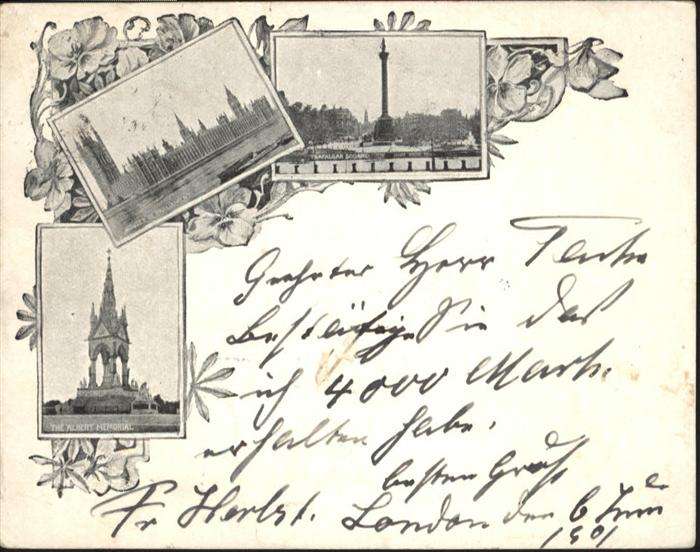 TRAFALGAR SQUARE
THE ALBERT MEMORIAL
Geehrter Herr
Bestätige Sie das
ich 4000 Mark
erhalten habe.
besten Gruß
Fr Herbst. London den 6 Juni
1901